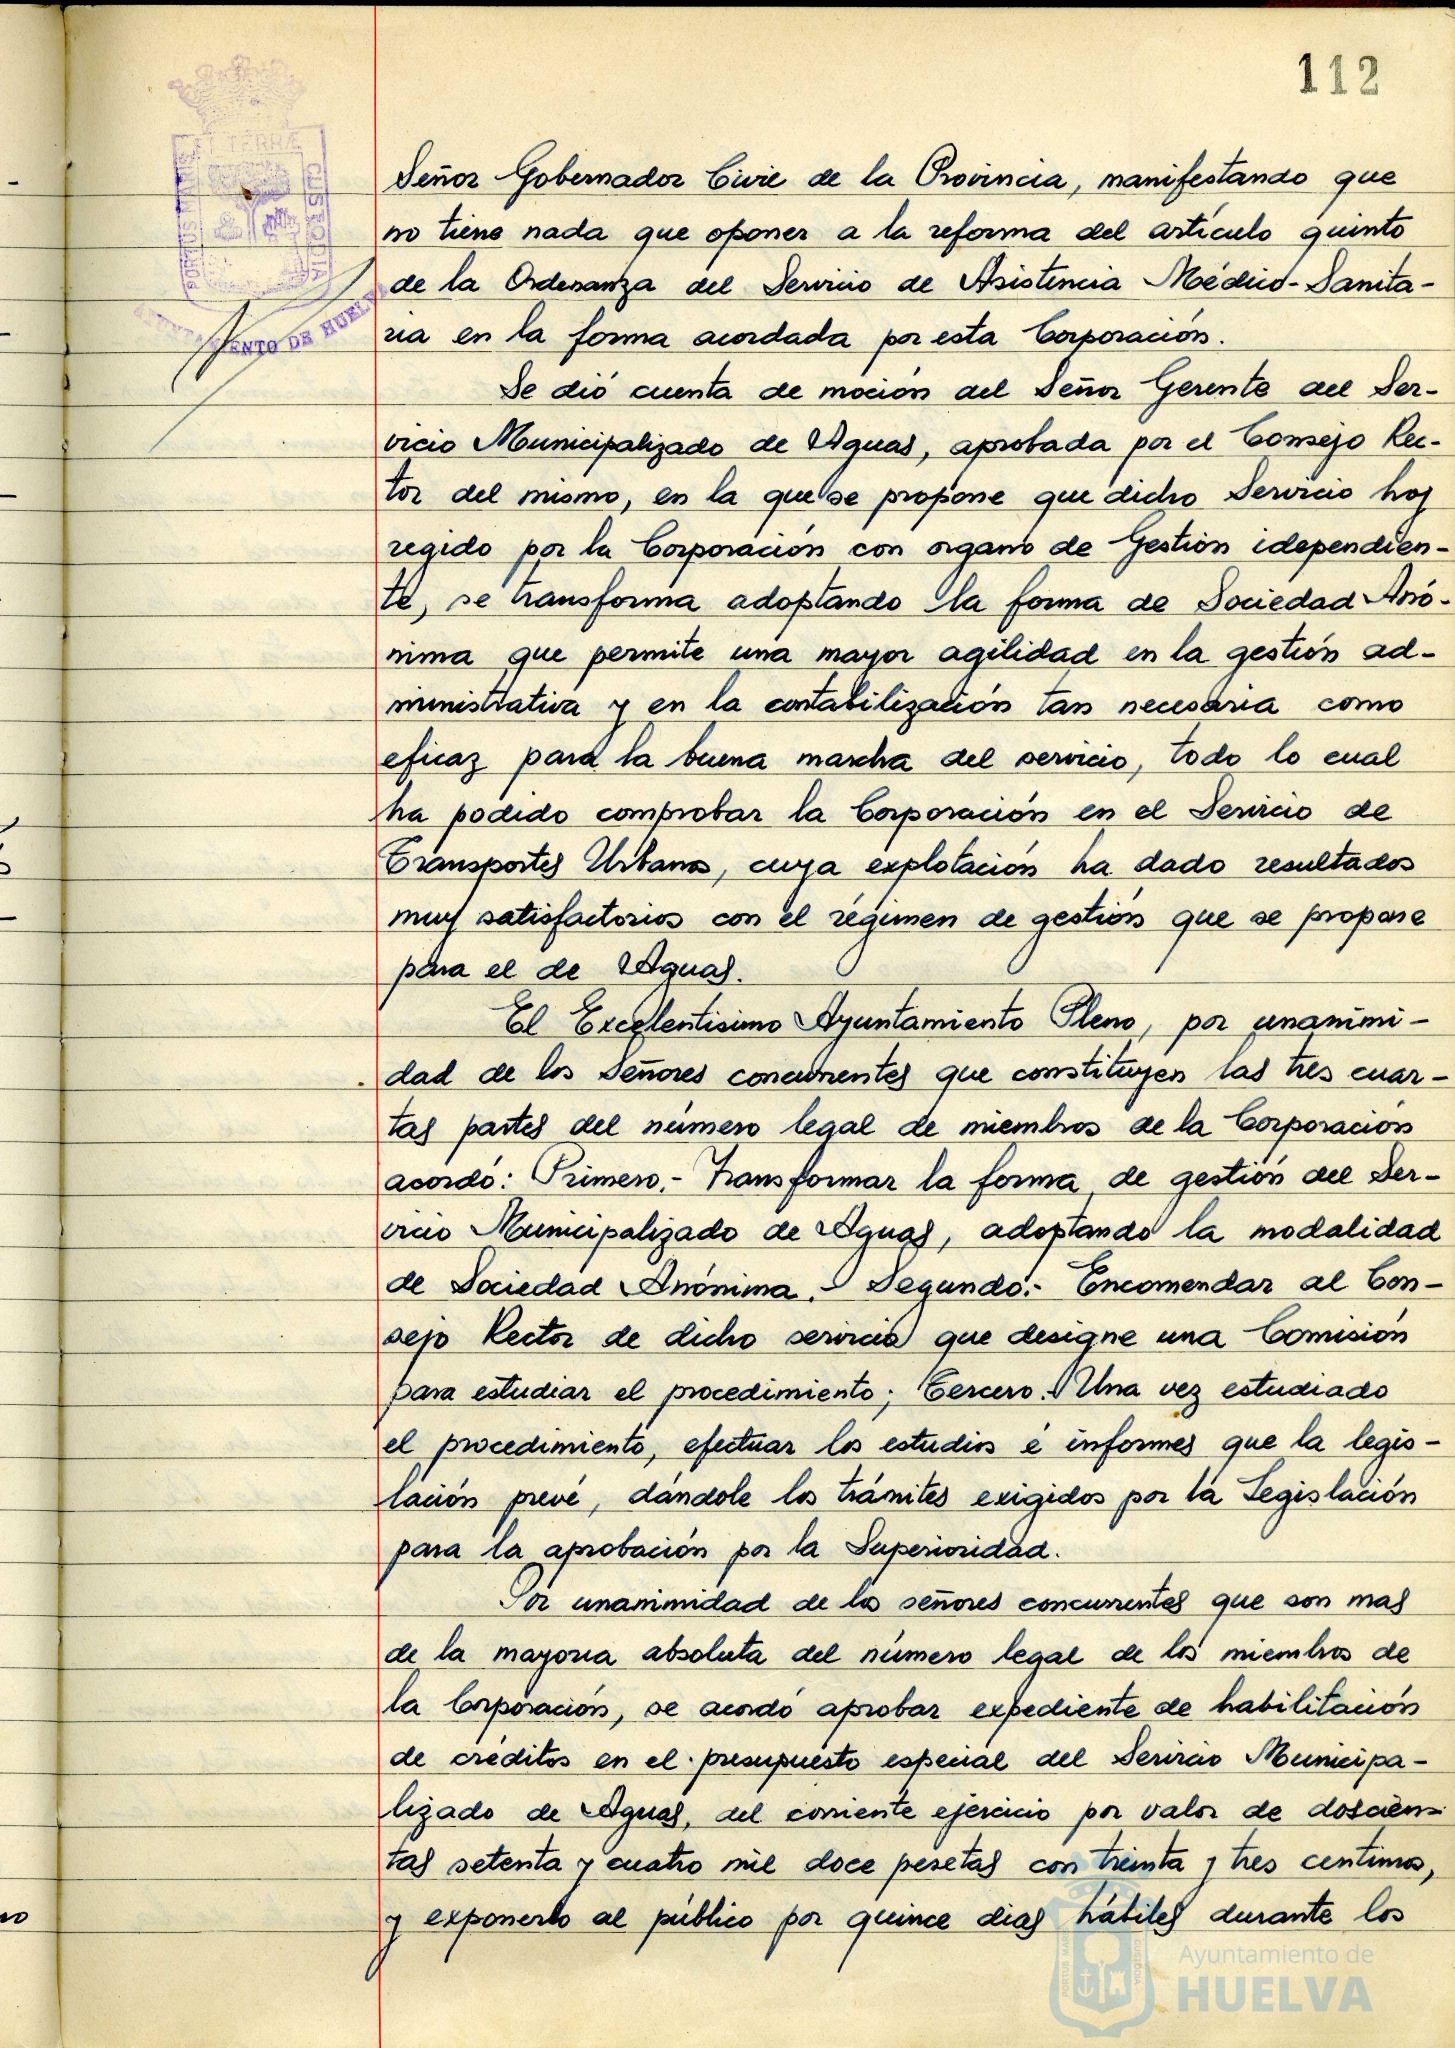 112
ET TERRÆ
PORTUS MARIS
CUSTODIA
AYUNTAMIENTO DE HUELVA
Señor Gobernador Civil de la Provincia, manifestando que
no tiene nada que oponer a la reforma del artículo quinto
de la Ordenanza del Servicio de Asistencia Médico-Sanita-
ria en la forma acordada por esta Corporación.
Se dió cuenta de moción del Señor Gerente del Ser-
vicio Municipalizado de Aguas, aprobada por el Consejo Rec-
tor del mismo, en la que se propone que dicho Servicio hoy
regido por la Corporación con organo de Gestión idependien-
te, se transforma adoptando la forma de Sociedad Anó-
nima que permite una mayor agilidad en la gestión ad-
ministrativa y en la contabilización tan necesaria como
eficaz para la buena marcha del servicio, todo lo cual
ha podido comprobar la Corporación en el Servicio de
Transportes Urbanos, cuya explotación ha dado resultados
muy satisfactorios con el régimen de gestión que se propone
para el de Aguas.
El Excelentisimo Ayuntamiento Pleno, por unanimi-
dad de los Señores concurrentes que constituyen las tres cuar-
tas partes del número legal de miembros de la Corporación
acordó: Primero.- Transformar la forma de gestión del Ser-
vicio Municipalizado de Aguas, adoptando la modalidad
de Sociedad Anónima.- Segundo.- Encomendar al Con-
sejo Rector de dicho servicio que designe una Comisión
para estudiar el procedimiento; Tercero.- Una vez estudiado
el procedimiento, efectuar los estudios é informes que la legis-
lación prevé, dándole los trámites exigidos por la Legislación
para la aprobación por la Superioridad.
Por unanimidad de los señores concurrentes que son mas
de la mayoria absoluta del número legal de los miembros de
la Corporación, se acordó aprobar expediente de habilitación
de créditos en el presupuesto especial del Servicio Municipa-
lizado de Aguas, del corriente ejercicio por valor de doscien-
tas setenta y cuatro mil doce pesetas con treinta y tres centimos,
y exponerlo al público por quince dias hábiles durante los
Ayuntamiento de
HUELVA